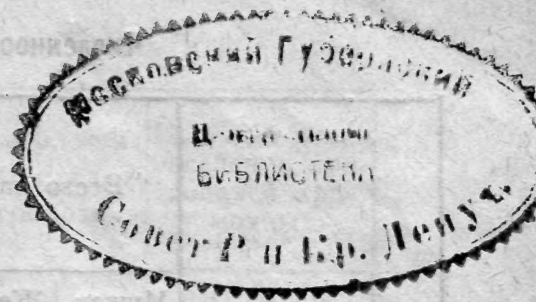 Московский Губернский
Центральная
БИБЛИОТЕКА
Совет Р и Кр. Депут.